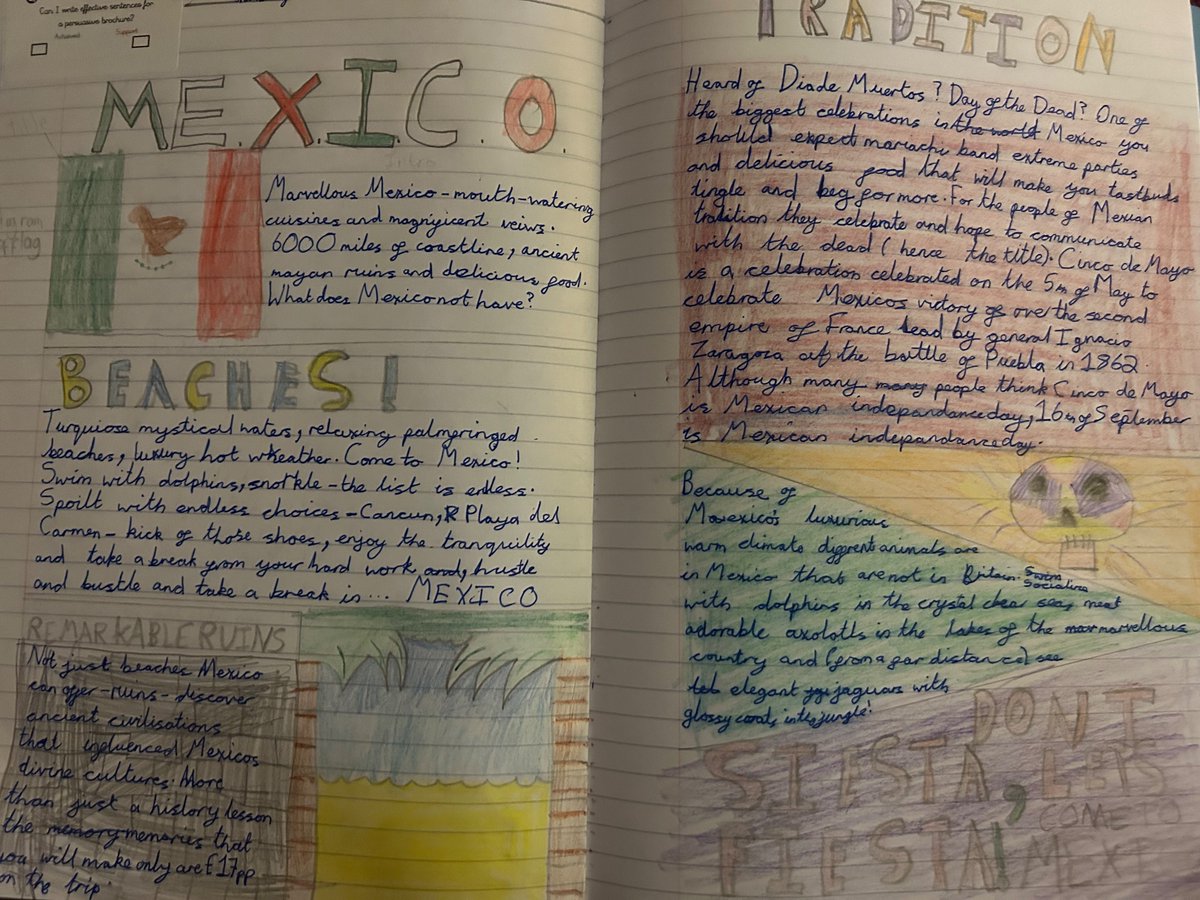 Can I write effective sentences for
a persuasive brochure?
Achieved
Support
M.E.X.I.C.O.
Intro
Marvellous Mexico - mouth-watering
cuisines and magnificent veiws.
6000 miles of coastline, ancient
mayan ruins and delicious food.
What does Mexico not have?
BEACHES!
Turquiose mystical waters, relaxing palmfringed
beaches, luxury hot wheather. Come to Mexico!
Swim with dolphins, snorkle - the list is endless.
Spoilt with endless choices - Cancun, Playa del
Carmen - kick of those shoes, enjoy the tranquility
and take a break from your hard work and, hustle
and bustle and take a break is... MEXICO
REMARKABLE RUINS
Not just beaches Mexico
can offer - ruins - discover
ancient civilisations
that influenced Mexicos
divine cultures. More
than just a history lesson
the memory memories that
you will make only are £17pp
on the trip.
TRADITION
Heard of Dia de Muertos? Day of the Dead? One of
the biggest celebrations in the world Mexico you
should expect mariachi band extreme parties
and delicious food that will make you tastbuds
tingle and beg for more. For the people of Mexian
tradition they celebrate and hope to communicate
with the dead (hence the title). Cinco de Mayo
is a celebration celebrated on the 5th of May to
celebrate Mexicos victory of over the second
empire of France lead by general Ignacio
Zaragoza at the battle of Puebla in 1862.
Although many many people think Cinco de Mayo
is Mexican independance day, 16th of September
is Mexican independance day.
Because of
Mexico's luxurious
warm climate diffrent animals are
in Mexico that are not in Britain. Swim
Socialise
with dolphins in the crystal clear seas, meet
adorable axolotls in the lakes of the mar marvellous
country and (from a far distance) see
elegant jaguars with
glossy coats in the jungle!
DON'T
SIESTA, LETS
FIESTA!
COME TO
MEXI